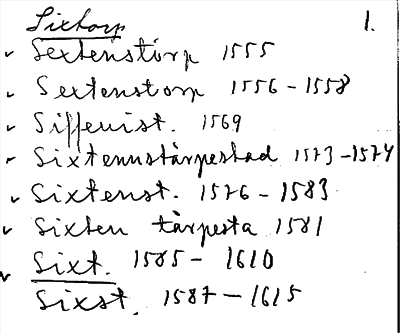 Sixtorp 1.
Sextenstörp 1555
Sextenstorp 1556-1558
Siffenist. 1569
Sixtennstårpestad 1573-1574
Sixtenst. 1576-1583
Sixten tårpesta 1581
Sixt. 1585-1610
Sixst. 1587-1615